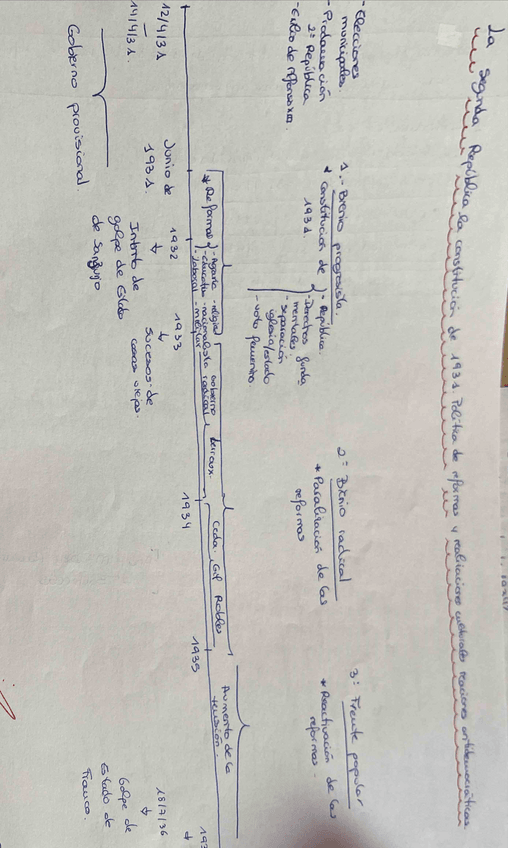 La Segunda República la constitución de 1931 Política de reformas y realizaciones culturales reacciones antidemocráticas
- Elecciones
municipales.
- Proclamación
2ª República
- Exilio de Alfonso XIII.
1.- Bienio progresista.
* Constitución de
1931.
- República.
- Derechos funda
mentales.
- separación
iglesia/estado
- voto femenino.
2º Bienio radical
* Paralización de las
reformas
3º Frente popular
* Reactivación de las
reformas.
* Reformas
- Agraria - religiosa
- educativa - nacionalista
- laboral - militar
Gobierno Lerroux.
radical
Ceda. Gil Robles
Aumento de la
tensión.
12/4/31
14/4/31.
Gobierno provisional
Junio de
1931.
1932
↓
Intento de
golpe de Estado
de Sanjurjo
1933
↓
Sucesos de
casas viejas.
1934
1935
193
↓
18/7/36
↓
Golpe de
Estado de
Franco.